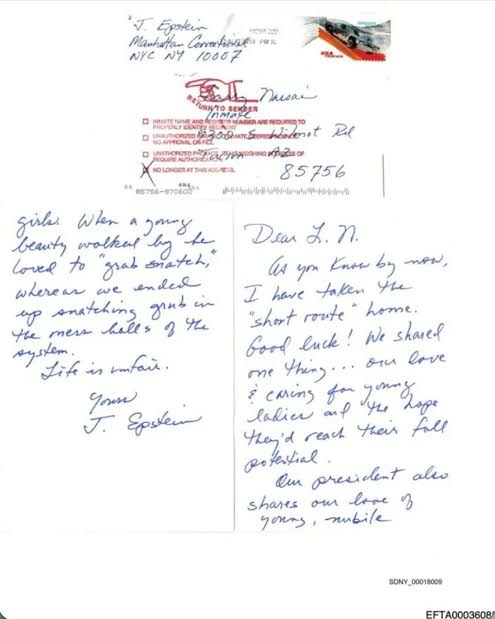 J. Epstein
Manhattan Correctional
NYC NY 10007
USA
FOREVER
RETURN TO SENDER
Larry Nassar
Inmate
9300 S Wilmot Rd
Tucson AZ
85756
INMATE NAME AND REGISTER NUMBER ARE REQUIRED TO
PROPERLY IDENTIFY RECIPIENT
UNAUTHORIZED
NO APPROVAL ON FILE.
UNAUTHORIZED
WEIGHING
OF
REQUIRE AUTHORIZATION
NO LONGER AT THIS ADDRESS.
85756-970600
Dear L. N.
As you know by now,
I have taken the
"short route" home.
Good luck! We shared
one thing... our love
& caring for young
ladies and the hope
they'd reach their full
potential.
Our president also
shares our love of
young, nubile
girls. When a young
beauty walked by he
loved to "grab snatch,"
whereas we ended
up snatching grub in
the mess halls of the
system.
Life is unfair.
Yours
J. Epstein
SDNY_00018009
EFTA0003608